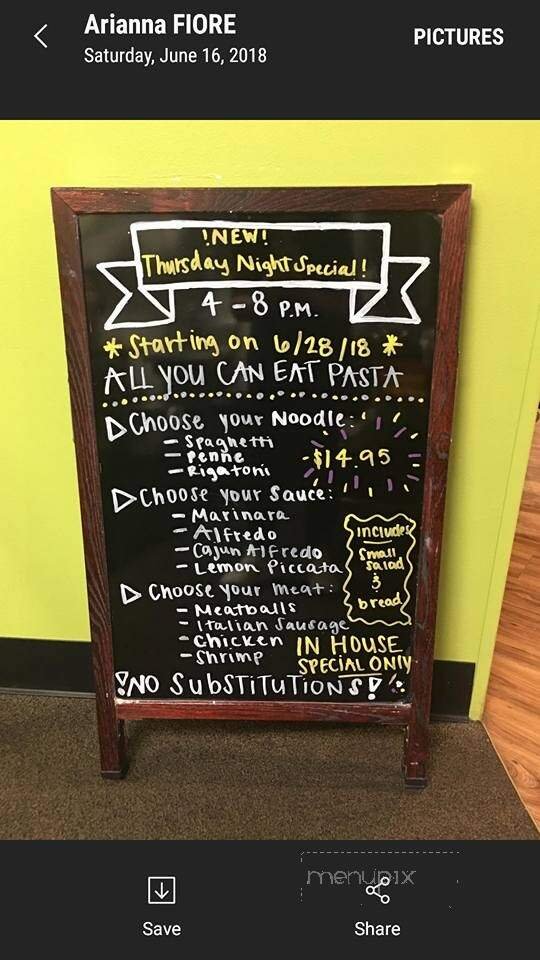 Arianna FIORE
Saturday, June 16, 2018
PICTURES
!NEW!
Thursday Night Special!
4-8 P.M.
* Starting on 6/28/18 *
ALL YOU CAN EAT PASTA
Choose your Noodle:
- Spaghetti
- Penne
- Rigatoni
-$14.95
Choose your Sauce:
- Marinara
- Alfredo
- Cajun Alfredo
- Lemon Piccata
includes
Small
Salad
&
bread
Choose your meat:
- Meatballs
- Italian Sausage
- Chicken
- Shrimp
IN HOUSE
SPECIAL ONLY
!NO SUBSTITUTIONS!
menupix
Save
Share